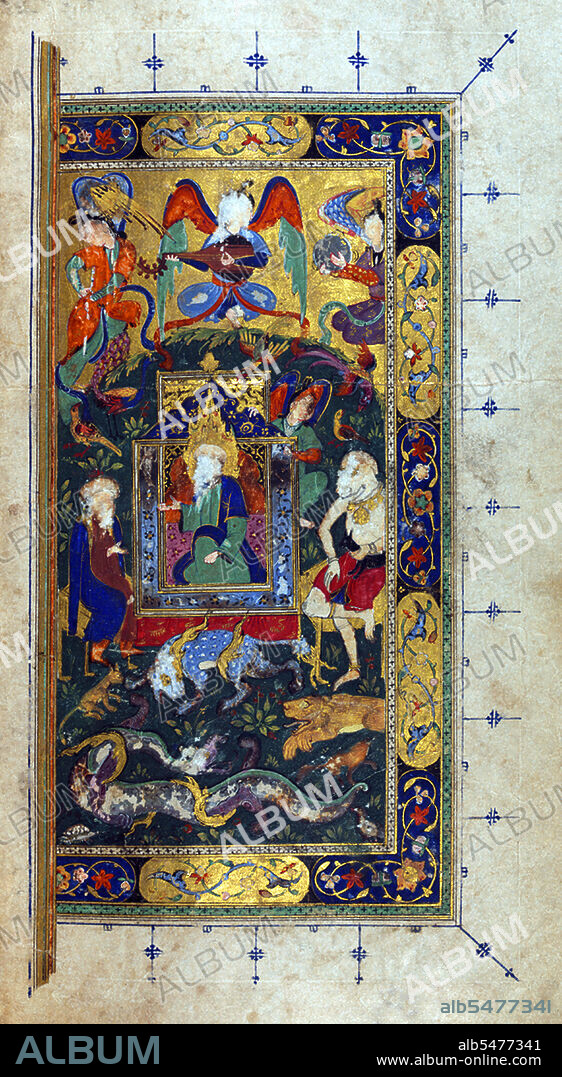 ALBUM
alb5477341
ALBUM
alb5477341
www.album-online.com